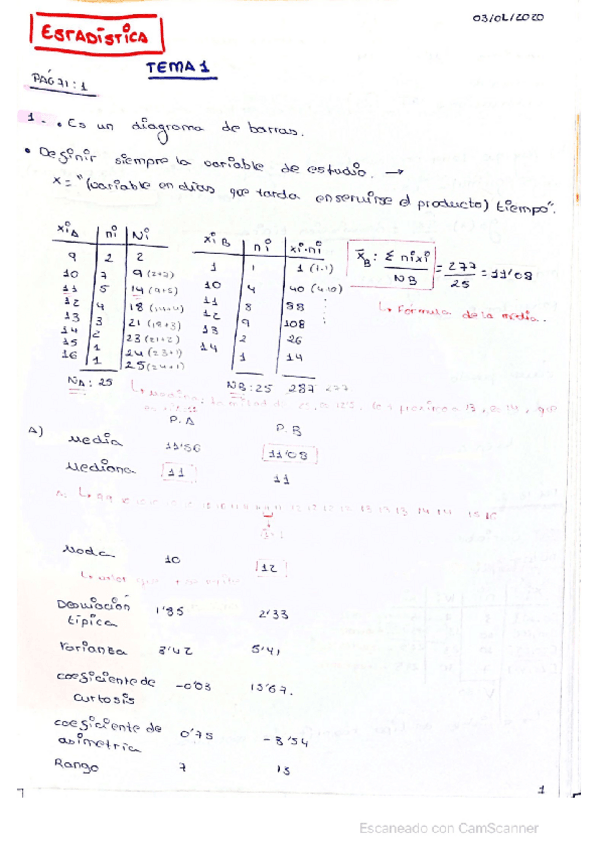 03/02/2020
ESTADÍSTICA
TEMA 1
PÁG 71: 1
1. • Es un diagrama de barras.
• Definir siempre la variable de estudio. →
x = "(variable en días que tarda en servirse el producto) tiempo".
xi A ni Ni
9 2 2
10 7 9 (2+7)
11 5 14 (9+5)
12 4 18 (14+4)
13 3 21 (18+3)
14 2 23 (21+2)
15 1 24 (23+1)
16 1 25 (24+1)
NA: 25
xi B ni xi·ni
1 1 1 (1·1)
10 4 40 (4·10)
11 8 88
12 9 108
13 2 26
14 1 14
NB: 25 287 277
x̄B: Σ nixi / NB = 277 / 25 = 11'08
↳ Fórmula de la media.
P. A P. B
A)
Media 11'56 11'08
Mediana 11 11
Moda 10 12
Desviación típica 1'85 2'33
Varianza 3'42 5'41
coeficiente de curtosis -0'03 15'67.
coeficiente de asimetría 0'75 -3'54
Rango 7 13
1
Escaneado con CamScanner